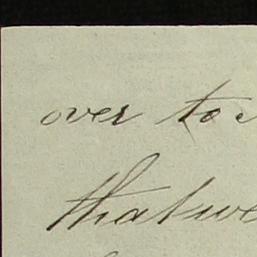 over to
that we